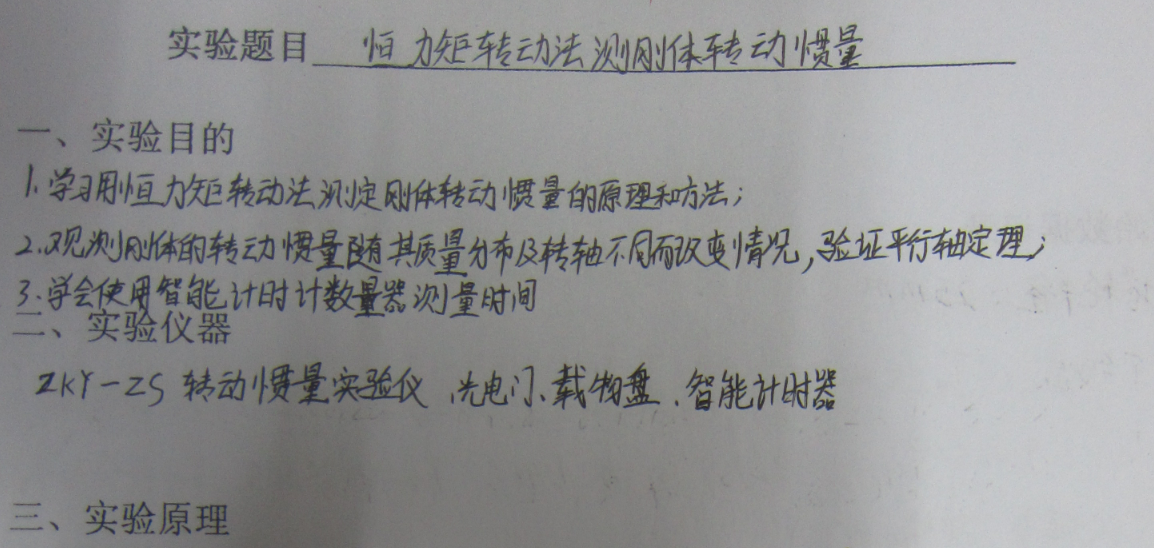 实验题目 恒力矩转动法测刚体转动惯量
一、实验目的
1.学习用恒力矩转动法测定刚体转动惯量的原理和方法;
2.观测刚体的转动惯量随其质量分布及转轴不同而改变情况,验证平行轴定理;
3.学会使用智能计时计数量器测量时间
二、实验仪器
ZKY-ZS 转动惯量实验仪、光电门、载物盘、智能计时器
三、实验原理